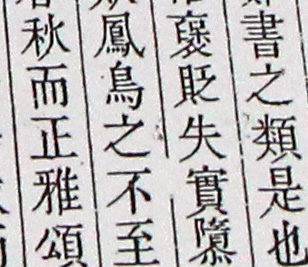 書之類是也
褒貶失實隳
鳳鳥之不至
秋而正雅頌